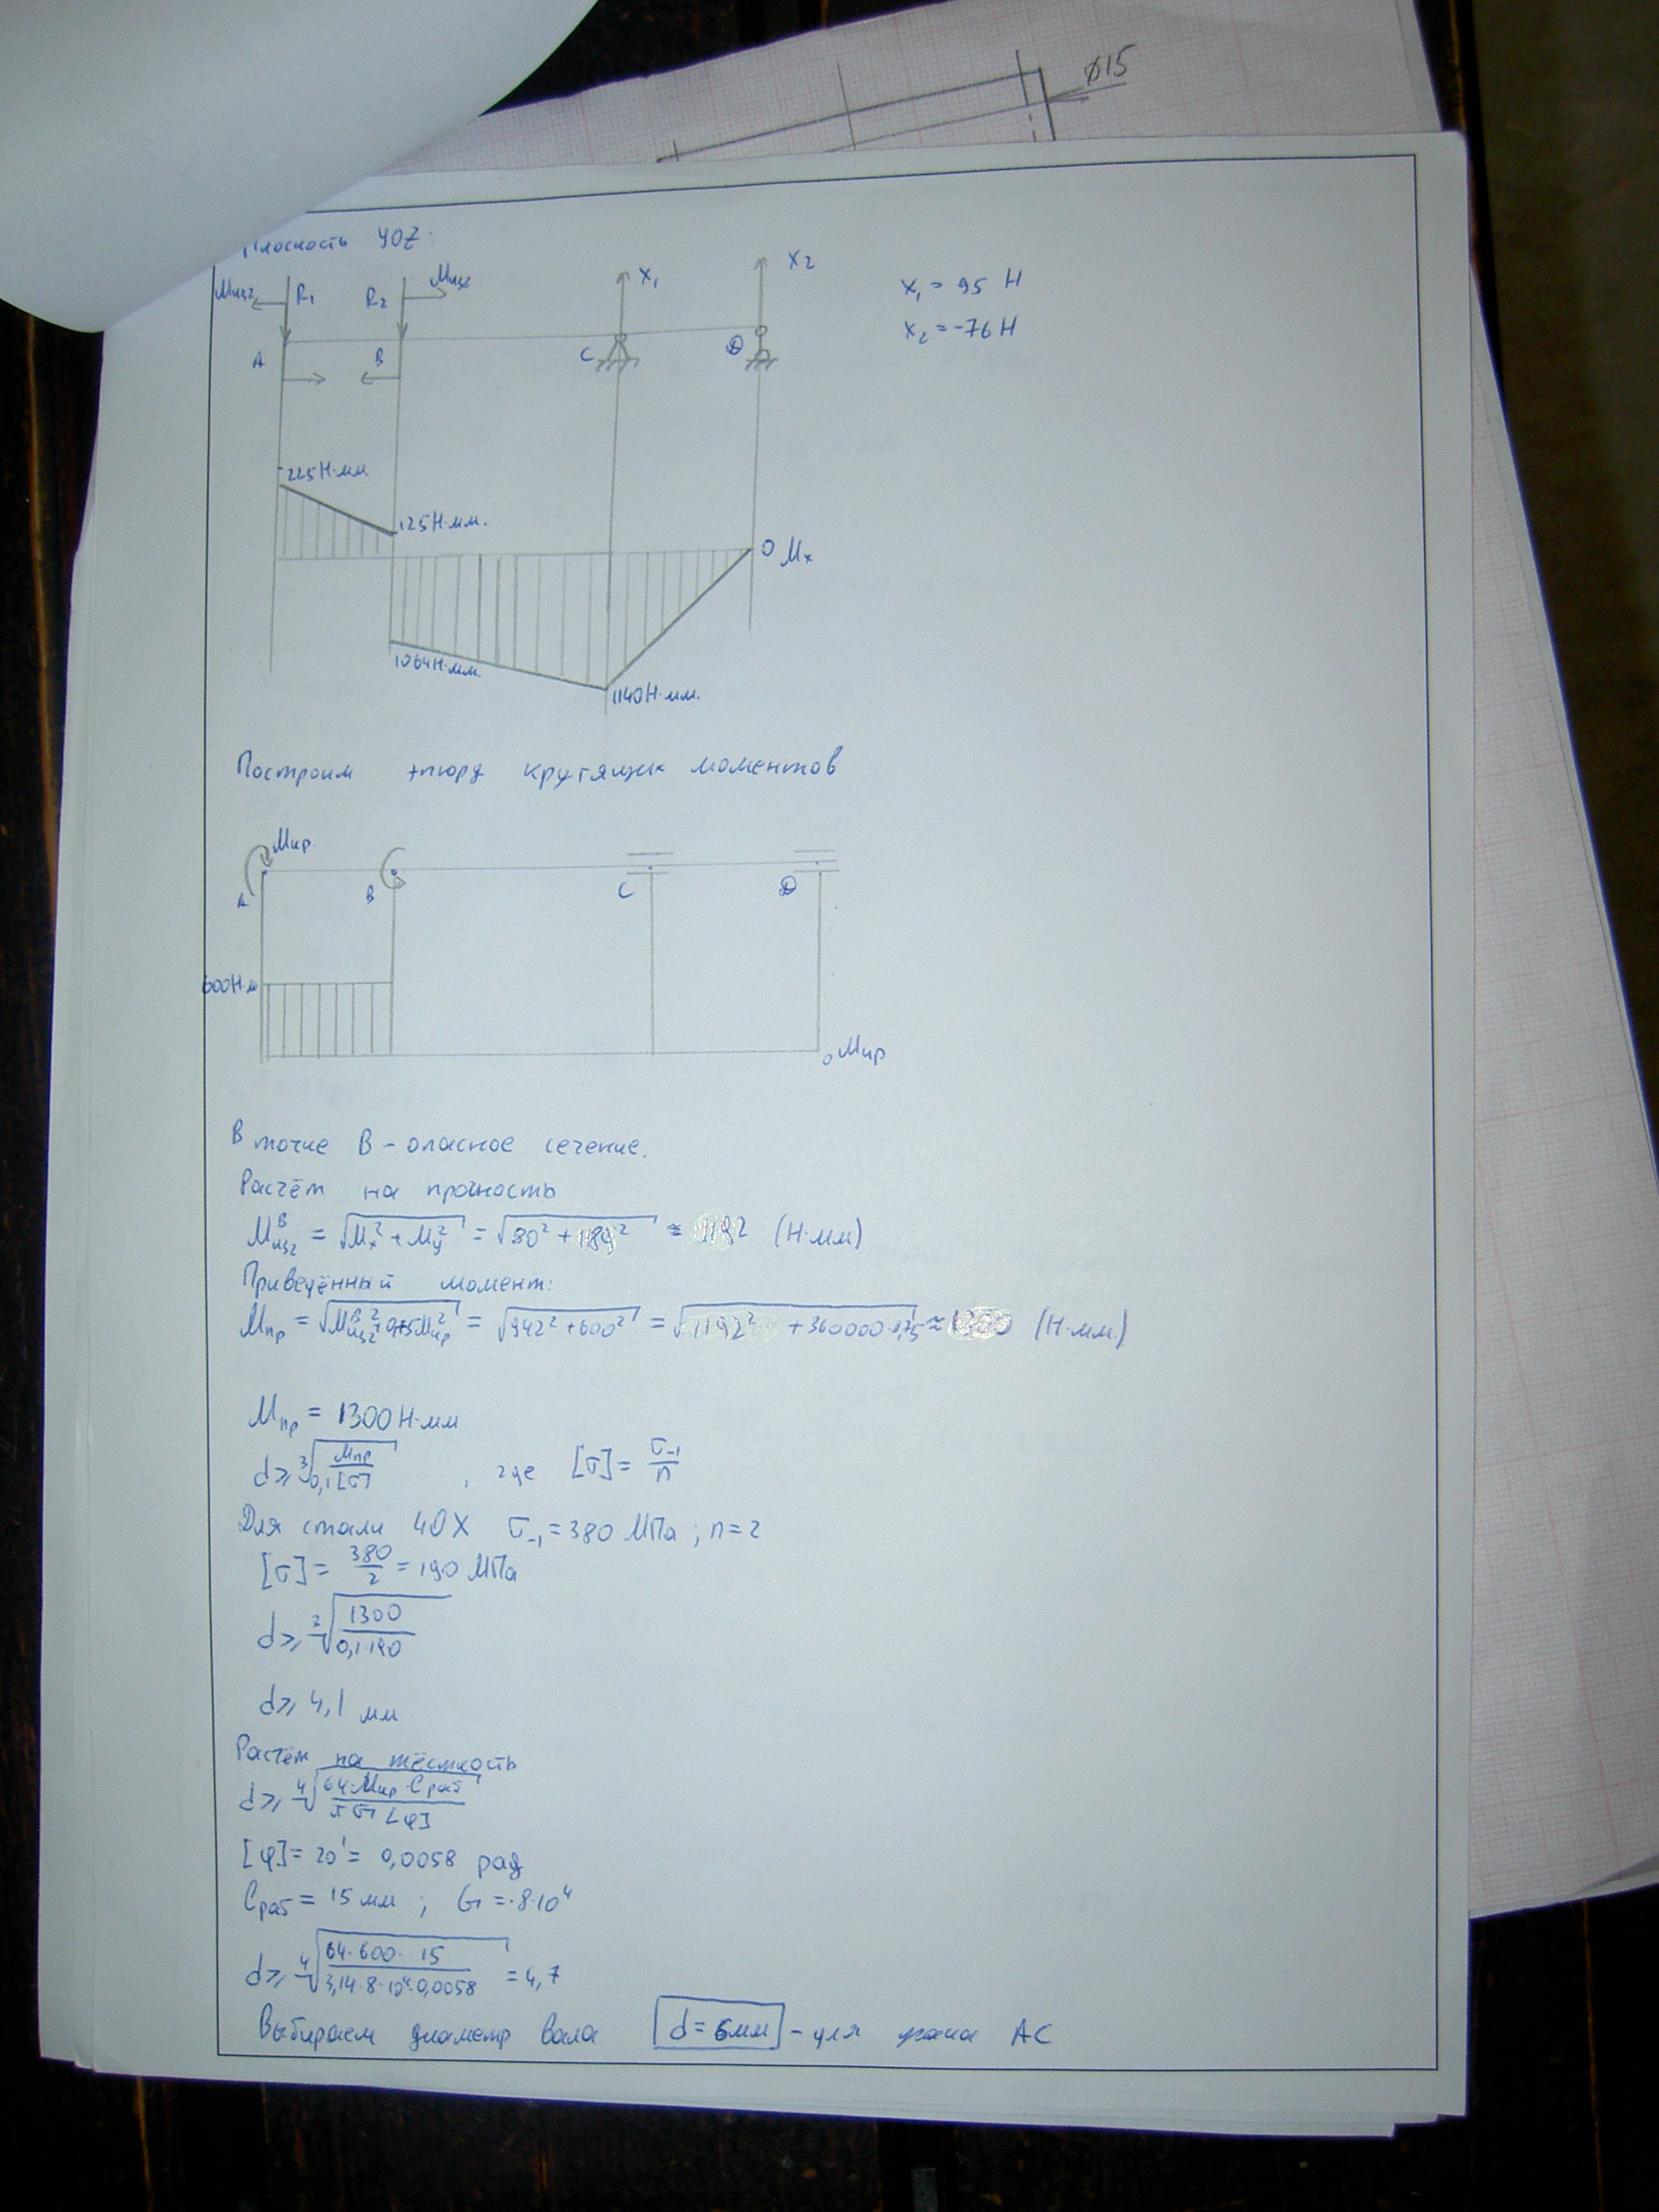 Ø15
Плоскость YOZ:
Mизг R₁ R₂ Mизг X₁ X₂
X₁ = 95 Н
X₂ = -76 Н
A B C D
225 Н·мм
125 Н·мм.
0 Mx
1064 Н·мм.
1140 Н·мм.
Построим эпюру крутящих моментов
Mкр.
A B C D
600 Н·м
0 Mкр
В точке B - опасное сечение.
Расчёт на прочность
Mᴮизг = √(Mx² + My²) = √(80² + 1189²) ≈ 1192 (Н·мм)
Приведённый момент:
Mпр = √(Mᴮизг² + 0,75Mкр²) = √(942² + 600²) = √(1192² + 360000·0,75) ≈ 1300 (Н·мм.)
Mпр = 1300 Н·мм
d ≥ ∛(Mпр / 0,1[σ]) , где [σ] = σ₋₁ / n
Для стали 40X σ₋₁ = 380 МПа ; n = 2
[σ] = 380 / 2 = 190 МПа
d ≥ ∛(1300 / 0,1·190)
d ≥ 4,1 мм
Расчём на жёсткость
d ≥ ∜(64·Mкр·Lраб / πG[φ])
[φ] = 20' = 0,0058 рад
Lраб = 15 мм ; G = ·8·10⁴
d ≥ ∜(64·600·15 / 3,14·8·10⁴·0,0058) = 4,7
Выбираем диаметр вала d = 6мм - для AC